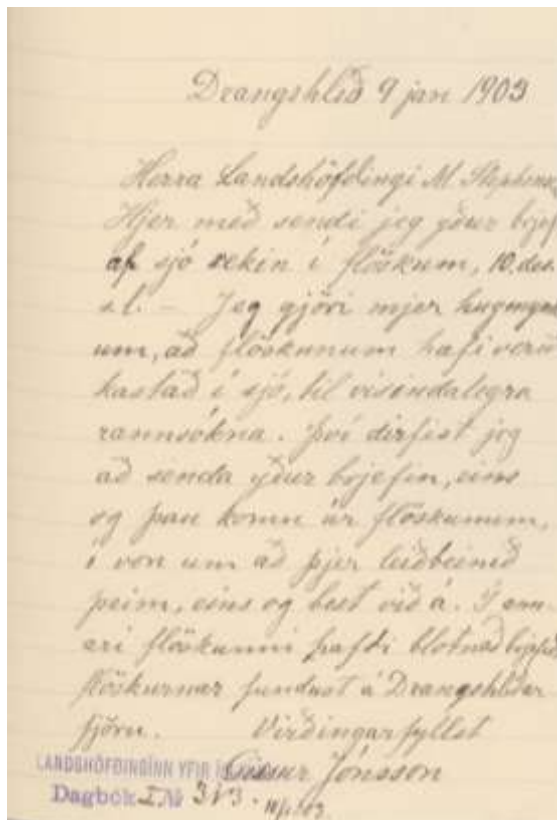 Drangshlíð 9 jan 1903
Herra Landshöfðingi M Stephens
Hjer með sendi jeg yður brjef
af sjó rekin í flöskum, 10. des.
s.l. – Jeg gjöri mjer hugmynd
um, að flöskunum hafi verið
kastað í sjó, til vísindalegra
rannsókna. Því dirfist jeg
að senda yður brjefin, eins
og þau komu úr flöskunum,
í von um að þjer leiðbeinið
þeim, eins og best við á. Í ann-
ari flöskunni hafði blotnað brjefið
Flöskurnar fundust á Drangshlíðar
fjöru. Virðingarfyllst
Gissur Jónsson
LANDSHÖFÐINGINN YFIR
Dagbók I. №